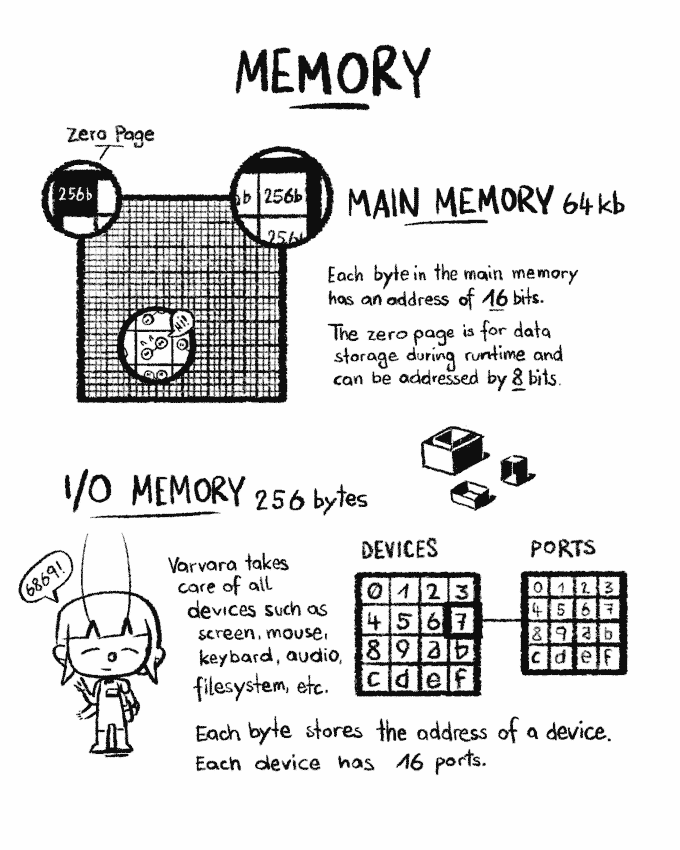 MEMORY
Zero Page
256b
b 256b
256b
MAIN MEMORY 64kb
Each byte in the main memory
has an address of 16 bits.
The zero page is for data
storage during runtime and
can be addressed by 8 bits.
HI!
I/O MEMORY 256 bytes
6869!
Varvara takes
care of all
devices such as
screen, mouse,
keybard, audio,
filesystem, etc.
DEVICES
0 1 2 3
4 5 6 7
8 9 a b
c d e f
PORTS
0 1 2 3
4 5 6 7
8 9 a b
c d e f
Each byte stores the address of a device.
Each device has 16 ports.